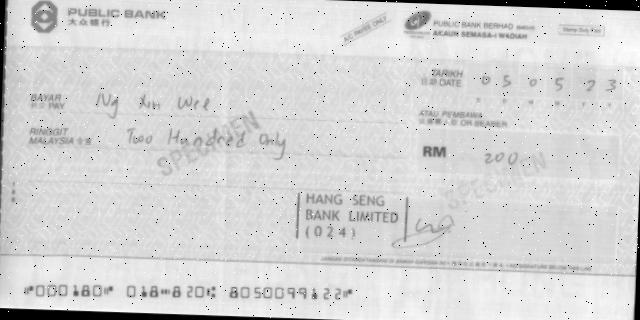 PUBLIC BANK
大众银行
A/C PAYEE ONLY
PUBLIC BANK BERHAD
AKAUN SEMASA-i WADIAH
Stamp Duty Paid
TARIKH
日期 DATE 0 5 0 5 2 3
BAYAR
PAY Ng Xin Wee
ATAU PEMBAWA
OR BEARER
RINGGIT
MALAYSIA Two Hundred Only
RM 200
SPECIMEN
SPECIMEN
HANG SENG
BANK LIMITED
(024)
⑈000180⑈ 018⑉820⑆ 8050099122⑈